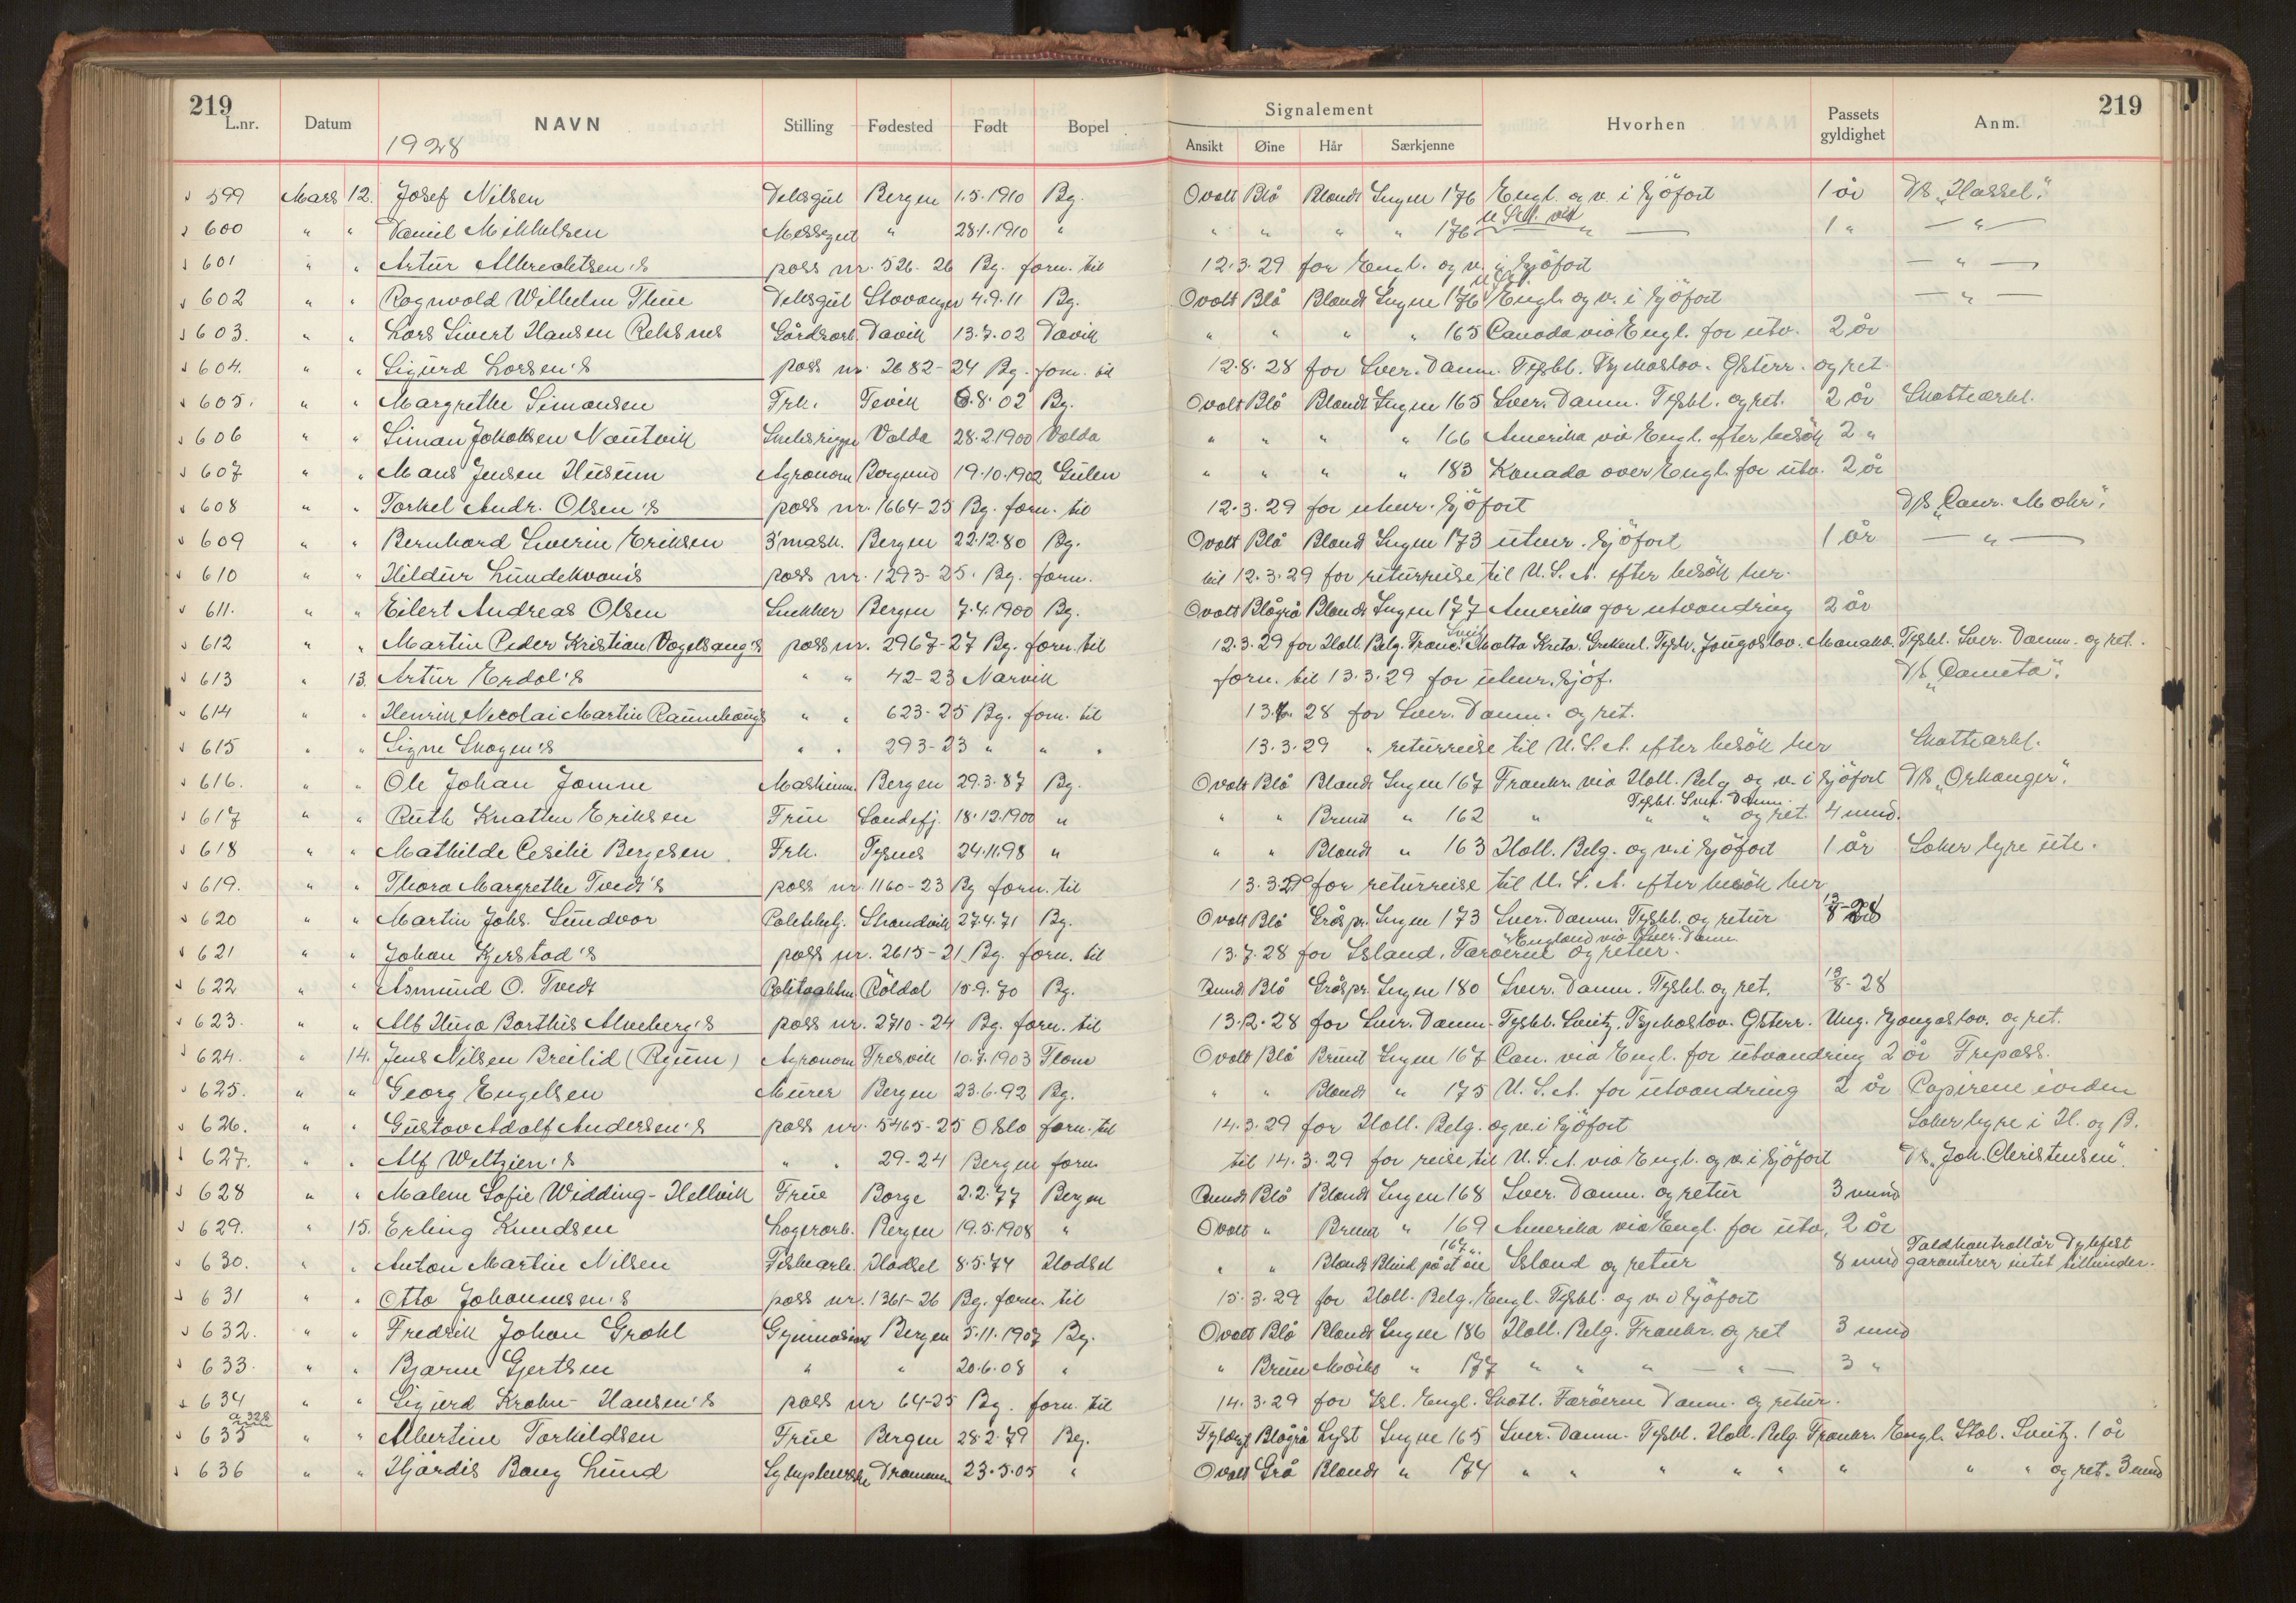 219 219
L.nr. Datum NAVN Stilling Fødested Født Bopel Signalement Hvorhen Passets gyldighet Anm.
1928 Ansikt Øine Hår Særkjenne
599 Mars 12. Josef Nilsen Deksgut Bergen 1.5.1910 Bg. Ovalt Blå Blondt Ingen 176 Engl. og v. i sjöfart 1 år D/S „Hassel".
U.S.A. via
600 " " Daniel Mikkelsen Messegut " 28.1.1910 " " " " " 176 " 1 " — " —
601 " " Artur Albrechtsen's pass nr. 526-26 Bg. forn. til 12.3.29 for Engl. og v. i sjöfart — " —
602 " " Rognvald Wilhelm Thue Deksgut Stavanger 4.9.11 Bg. Ovalt Blå Blondt Ingen 176 Engl. og v. i sjöfart — " —
603. " " Lars Sivert Hansen Reksnes Gårdsarb. Davik 13.7.02 Davik " " " " 165 Canada via Engl. for utv. 2 år
604. " " Sigurd Larsen's pass nr. 2682-24 Bg. forn. til 12.8.28 for Sver. Danm. Tyskl. Tsjekoslov. Østerr. og ret.
605. " " Margrethe Simonsen Frk. Tevik 6.8.02 Bg. Ovalt Blå Blondt Ingen 165 Sver. Danm. Tyskl. og ret. 2 år Skatteerkl.
606 " " Simon Jakobsen Nautvik Volda 28.2.1900 Volda " " " " 166 Amerika via Engl. efter besök 2 "
607 " " Mans Jensen Husum Agronom Borgund 19.10.1902 Gulen " " " " 183 Kanada over Engl. for utv. 2 år
608 " " Torkel Andr. Olsen's pass nr. 1664-25 Bg. forn. til 12.3.29 for utenr. sjöfart D/S „Conr. Mohr".
609 " " Bernhard Severin Eriksen 3'mask. Bergen 22.12.80 Bg. Ovalt Blå Blond Ingen 173 utenr. sjöfart 1 år — " —
610 " " Hildur Lundekvam's pass nr. 1293-25. Bg. forn. til 12.3.29 for returreise til U.S.A. efter besök her.
611. " " Eilert Andreas Olsen Snekker Bergen 7.4.1900 Bg. Ovalt Blågrå Blondt Ingen 177 Amerika for utvandring 2 år
612 " " Martin Peder Kristian Vogelsang's pass nr. 2967-27 Bg. forn. til 12.3.29 for Holl. Belg. Franc. Sveitz Malta Kreta. Grekenl. Tyrk. Jougoslov. Tyskl. Sver. Danm. og ret.
613 " 13. Artur Erdal's " " 42-23 Narvik forn. til 13.3.29 for utenr. sjöf. D/S „Cometa".
614 " " Henrik Nicolai Martin Raunehaug's " " 623-25 Bg. forn. til 28 for Sver. Danm. og ret.
615 " " Signe Skogen's " " 293-23 " " " 13.3.29 " returreise til U.S.A. efter besök her Skatteerkl.
616. " " Ole Johan Jomne Maskinm. Bergen 29.3.87 Bg. Ovalt Blå Blondt Ingen 167 Frankr. via Holl. Belg. og v. i sjöfart D/S „Orkanger".
Tyskl. Sver. Danm.
617 " " Ruth Knatten Eriksen Frue Sandefj. 18.12.1900 " " " Brunt " 162 " " " og ret. 4 mnd.
618 " " Mathilde Cesilie Bergesen Frk. Tysnes 24.11.98 " " " Blondt " 163 Holl. Belg. og v. i sjöfart 1 år Söker hyre ute.
619. " " Thora Margrethe Tvedt's pass nr 1160-23 Bg forn. til 13.3.29 for returreise til U.S.A. efter besök her
620 " " Martin Johs. Sundvor Politibetj. Strandvik 27.4.71 Bg. Ovalt Blå Gråspr. Ingen 173 Sver. Danm. Tyskl. og retur 13/8-28
England via Sver. Danm.
621 " " Johan Kjerstad's pass nr. 2615-21 Bg. forn. til 13.7.28 for Island, Færøerne og retur.
622 " " Åsmund O. Tvedt Röldal 15.9.70 Bg. Rundt Blå Gråspr. Ingen 180 Sver. Danm. Tyskl. og ret. 13/8-28
623. " " Alb Hugo Alveberg's pass nr. 2710-24 Bg. forn. til 13.12.28 for Sver. Danm. Tyskl. Sveitz. Tsjekoslov. Østerr. Ung. Jougoslov. og ret.
624. " 14. Jens Nilsen Breilid (Rygum) Agronom Fresvik 10.7.1903 Flom Ovalt Blå Brunt Ingen 167 Can. via Engl. for utvandring 2 år Fripass.
625. " " Georg Engelsen Murer Bergen 23.6.92 Bg. " " Blondt " 175 U.S.A. for utvandring 2 år Papirene iorden
626. " " Gustav Adolf Andersen's pass nr. 5465-25 Oslo forn. til 14.3.29 for Holl. Belg. og v. i sjöfart Söker hyre i H. og B.
627. " " Alf Weltzien's " " 29-24 Bergen forn. til 14.3.29 for reise til U.S.A. via Engl. og v. i sjöfart D/S „Joh. Christensen".
628 " " Malene Sofie Widding-Hellvik Frue Borge 2.2.77 Bergen Rundt Blå Blondt Ingen 168 Sver. Danm. og retur 3 mnd
629. " 15. Erling Knudsen Lagerarb. Bergen 19.5.1908 " Ovalt " Brunt " 169 Amerika via Engl. for utv. 2 år
167. Toldkontrollör Dybfest
630. " " Anton Martin Nilsen Fiskearb. Hadsel 8.5.74 Hadsel " " Blondt Blind på et öie Island og retur 8 mnd garanterer intet tilhinder.
631 " " Otto Johannesen's pass nr. 1361-26 Bg. forn. til 15.3.29 for Holl. Belg. Engl. Tyskl. og v. i sjöfart
632. " " Fredrik Johan Grohl Gymnasiast Bergen 5.11.1907 Bg. Ovalt Blå Blondt Ingen 186 Holl. Belg. Frankr. og ret 3 mnd
633. " " Bjarne Gjertsen " " 20.6.08 " " Brun Mörkt " 177 " " " — " — 3 "
634 " " Sigurd Krohn-Hansen's pass nr 64-25 Bg. forn. til 14.3.29 for Isl. Engl. Skotl. Færöerne Danm. og retur.
635 " " Albertine Torkildsen Frue Bergen 28.2.79 Bg. Fyldigt Blågrå Lyst Ingen 165 Sver. Danm. Tyskl. Holl. Belg. Frankr. Engl. Ital. Sveitz. 1 år
636 " " Hjördis Bang Lund Sykepleierske Drammen 23.5.05 " Ovalt Grå Blondt " 174 " " " " " " " " og ret. 3 mnd